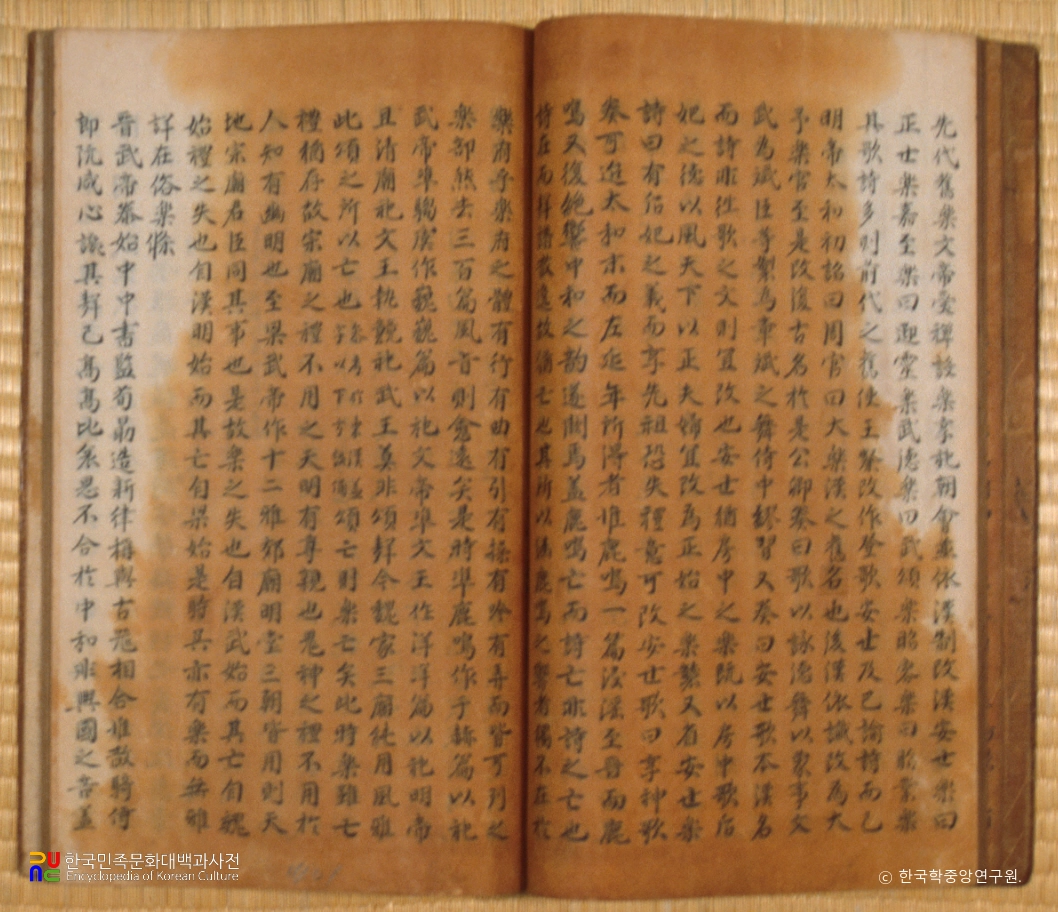 先代舊樂文帝受禪設樂享祀朝會並依漢制改漢安世樂曰
正世樂嘉至樂曰迎靈樂武德樂曰武頌樂昭容樂曰昭業樂
其歌詩多則前代之舊使王粲改作登歌安世及巴諭詩而已
明帝太和初詔曰周官曰大樂漢之舊名也後漢依讖改為大
予樂官至是改復古名於是公卿奏曰歌以詠德舞以象事文
武為斌臣等製為章斌之舞侍中繆習又奏曰安世歌本漢名
而詩非往歌之文則宜改也安世猶房中之樂既以房中歌后
妃之德以風天下以正夫婦宜改為正始之樂襲又省安世樂
詩曰有后妃之義而享先祖恐失禮意可改安世歌曰享神歌
奏可迨太和末而左延年所得者惟鹿鳴一篇後漢至晉而鹿
鳴又復絕響中和之韵遂闕焉蓋鹿鳴亡而詩亡非詩之亡也
詩在而譜故猶亡也其所以鹿鳴之響者獨不在於
樂府乎樂府之體有行有曲有引有操有吟有弄而皆可列之
樂部然去三百篇風音則愈遠矣是時準鹿鳴作于赫篇以祀
武帝準騶虞作巍巍篇以祀文帝準文王作洋洋篇以祀明帝
且清廟祀文王執競祀武王莫非頌聲今魏家三廟純用風雅
此頌之所以亡也頌亡則樂亡矣此時樂雖亡
禮猶存故宗廟之禮不用之天明有尊親也鬼神之禮不用於
人知有幽明也至梁武帝作十二雅郊廟明堂三朝皆用則天
地宗廟君臣同其事也是故樂之失也自漢武始而其亡自魏
始禮之失也自漢明始而其亡自梁始是時其亦有樂而無雅
詳在俗樂條
晉武帝泰始中中書監荀勗造新律稱與古器相合惟散騎侍
郎阮咸心譏其聲已高高比哀思不合於中和非興國之音蓋
한국민족문화대백과사전
Encyclopedia of Korean Culture
ⓒ 한국학중앙연구원.